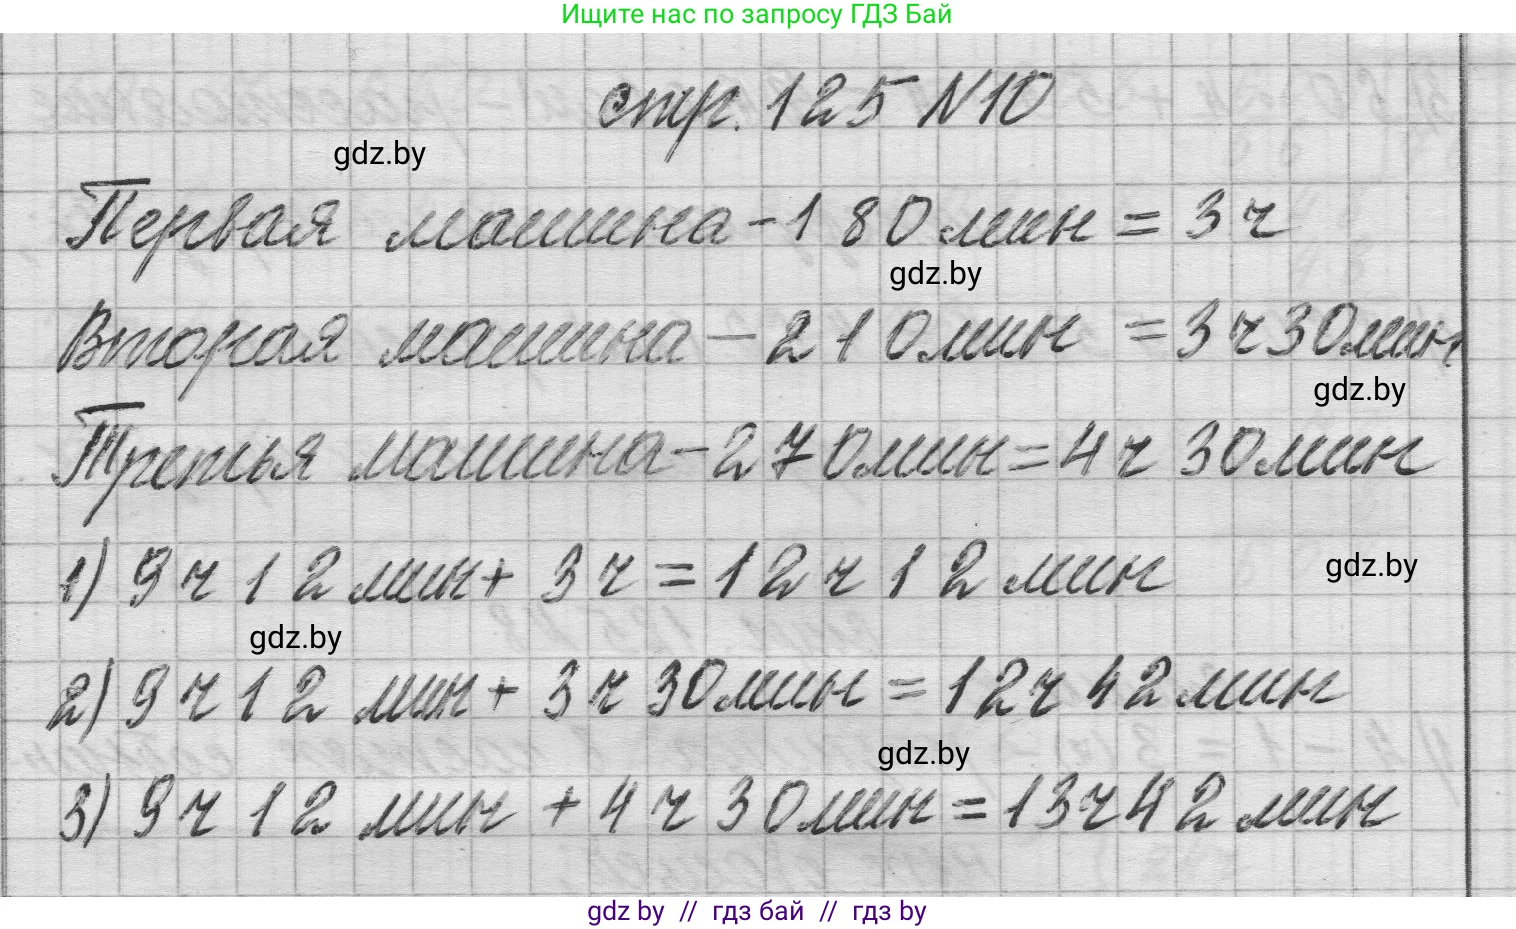 Ищите нас по запросу ГДЗ Бай
стр. 125 N10
gdz.by
Первая машина - 180 мин = 3 ч
gdz.by
Вторая машина - 210 мин = 3 ч 30 мин
gdz.by
Третья машина - 270 мин = 4 ч 30 мин
1) 9 ч 12 мин + 3 ч = 12 ч 12 мин
gdz.by
gdz.by
2) 9 ч 12 мин + 3 ч 30 мин = 12 ч 42 мин
gdz.by
3) 9 ч 12 мин + 4 ч 30 мин = 13 ч 42 мин
gdz by // гдз бай // гдз by